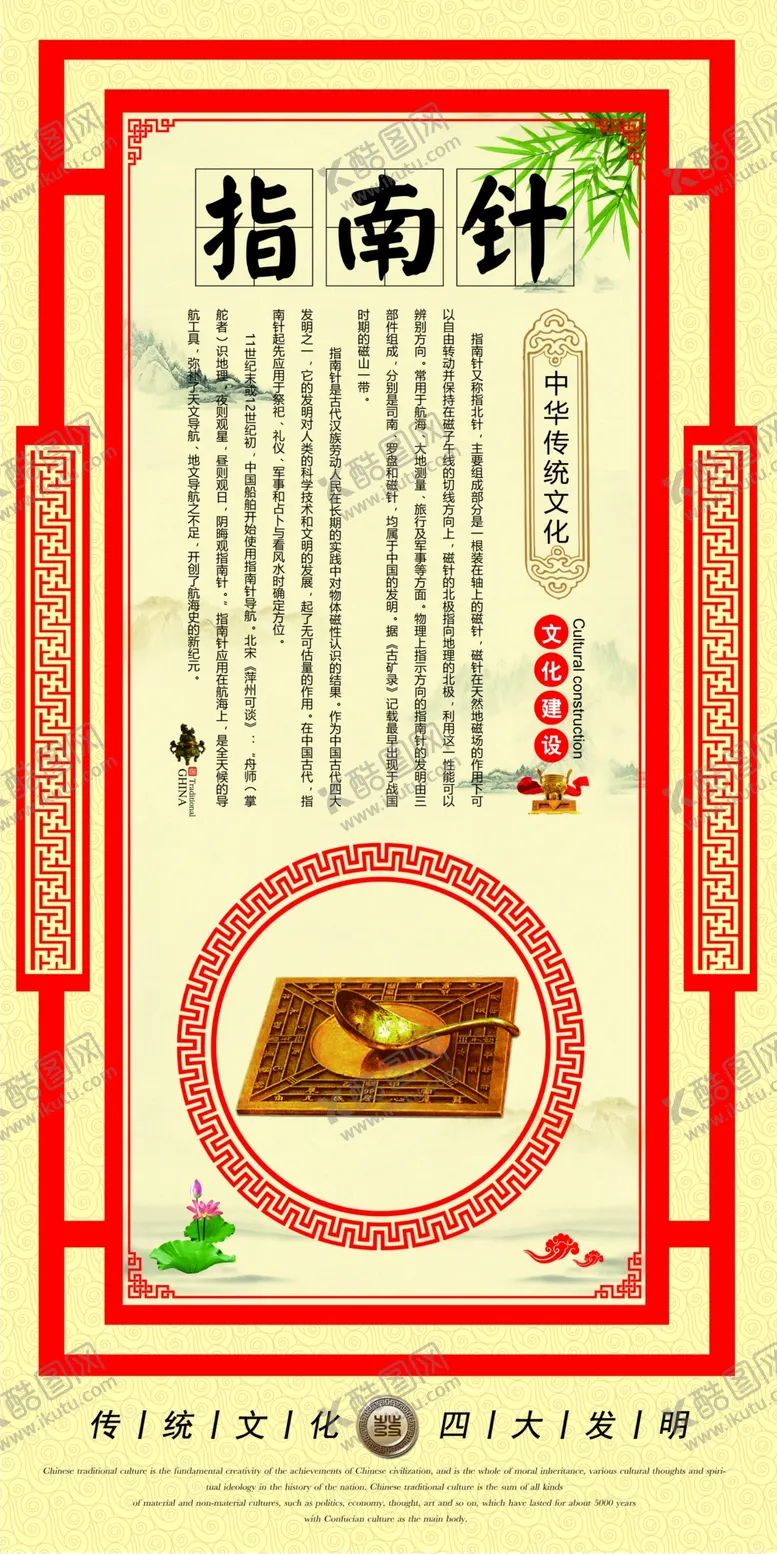 指南针
中华传统文化
文化建设
Cultural construction
指南针又称指北针，主要组成部分是一根装在轴上的磁针，磁针在天然地磁场的作用下可
以自由转动并保持在磁子午线的切线方向上，磁针的北极指向地理的北极，利用这一性能可以
辨别方向。常用于航海、大地测量、旅行及军事等方面。物理上指示方向的指南针的发明由三
部件组成，分别是司南、罗盘和磁针，均属于中国的发明。据《古矿录》记载最早出现于战国
时期的磁山一带。
指南针是古代汉族劳动人民在长期的实践中对物体磁性认识的结果。作为中国古代四大
发明之一，它的发明对人类的科学技术和文明的发展，起了无可估量的作用。在中国古代，指
南针起先应用于祭祀、礼仪、军事和占卜与看风水时确定方位。
11世纪末或12世纪初，中国船舶开始使用指南针导航。北宋《萍州可谈》："舟师（掌
舵者）识地理，夜则观星，昼则观日，阴晦观指南针。"指南针应用在航海上，是全天候的导
航工具，弥补了天文导航、地文导航之不足，开创了航海史的新纪元。
Traditional
GHINA
传|统|文|化 四|大|发|明
Chinese traditional culture is the fundamental creativity of the achievements of Chinese civilization, and is the whole of moral inheritance, various cultural thoughts and spiri-
tual ideology in the history of the nation. Chinese traditional culture is the sum of all kinds
of material and non-material cultures, such as politics, economy, thought, art and so on, which have lasted for about 5000 years
with Confucian culture as the main body.
酷图网
www.ikutu.com